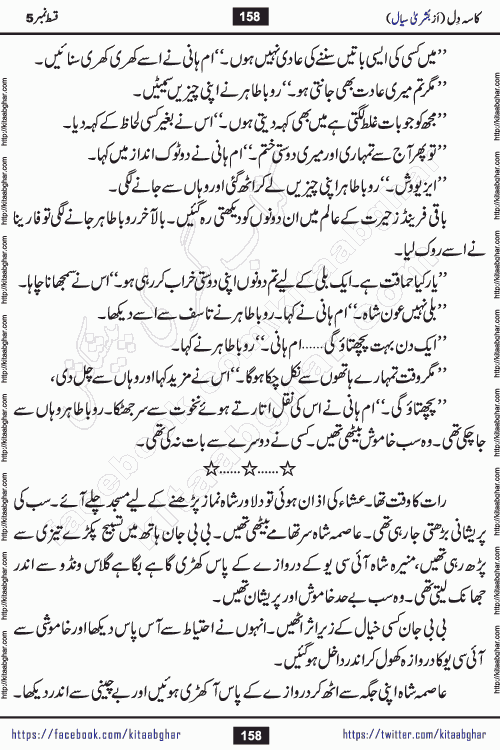 کاسہ دل (از بشریٰ سیال)
158
قسط نمبر 5
’’میں کسی کی ایسی باتیں سننے کی عادی نہیں ہوں۔‘‘ ام ہانی نے اسے کھری کھری سنائیں۔
’’مگر تم میری عادت بھی جانتی ہو۔‘‘ روباطاہر نے اپنی چیزیں سمیٹیں۔
’’مجھ کو جو بات غلط لگتی ہے میں بھی کہہ دیتی ہوں۔‘‘ اس نے بغیر کسی لحاظ کے کہہ دیا۔
’’تو پھر آج سے تمہاری اور میری دوستی ختم۔‘‘ ام ہانی نے دو ٹوک انداز میں کہا۔
’’ایز یو وش۔‘‘ روباطاہر اپنی چیزیں لے کر اٹھ گئی اور وہاں سے جانے لگی۔
باقی فرینڈز حیرت کے عالم میں ان دونوں کو دیکھتی رہ گئیں۔ بالآخر روباطاہر جانے لگی تو فارینا
نے اسے روک لیا۔
’’یار کیا حماقت ہے۔ ایک بلی کے لیے تم دونوں اپنی دوستی خراب کر رہی ہو۔‘‘ اس نے سمجھانا چاہا۔
’’بلی نہیں عون شاہ۔‘‘ ام ہانی نے کہا۔ روباطاہر نے تاسف سے اسے دیکھا۔
’’ایک دن بہت پچھتاؤ گی......ام ہانی۔‘‘ روباطاہر نے کہا۔
’’مگر وقت تمہارے ہاتھوں سے نکل چکا ہوگا۔‘‘ اس نے مزید کہا اور وہاں سے چل دی،
’’پچھتاؤ گی۔‘‘ ام ہانی نے اس کی نقل اتارتے ہوئے نخوت سے سر جھٹکا۔ روباطاہر وہاں سے
جا چکی تھی۔ وہ سب خاموش بیٹھی تھیں۔ کسی نے دوسرے سے بات نہ کی تھی۔
☆......☆......☆
رات کا وقت تھا۔ عشاء کی اذان ہوئی تو دلاور شاہ نماز پڑھنے کے لیے مسجد چلے آئے۔ سب کی
پریشانی بڑھتی جا رہی تھی۔ عاصمہ شاہ سر تھامے بیٹھی تھیں۔ بی بی جان ہاتھ میں تسبیح پکڑے تیزی سے
پڑھ رہی تھیں، منیرہ شاہ آئی سی یو کے دروازے کے پاس کھڑی گاہے بگاہے گلاس ونڈو سے اندر
جھانک لیتی تھی۔ وہ سب بے حد خاموش اور پریشان تھیں۔
بی بی جان کسی خیال کے زیر اثر اٹھیں۔ انہوں نے احتیاط سے آس پاس دیکھا اور خاموشی سے
آئی سی یو کا دروازہ کھول کر اندر داخل ہو گئیں۔
عاصمہ شاہ اپنی جگہ سے اٹھ کر دروازے کے پاس آ کھڑی ہوئیں اور بے چینی سے اندر دیکھا۔
https://facebook.com/kitaabghar
158
https://twitter.com/kitaabghar
http://kitaabghar.com